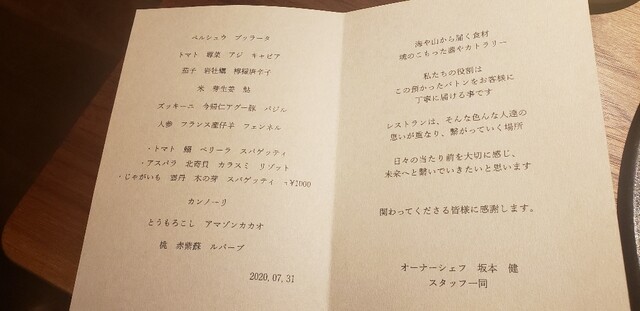 ペルシュウ ブッラータ
トマト 蓴菜 アジ キャビア
茄子 岩牡蠣 檸檬唐辛子
米 芽生姜 鮎
ズッキーニ 今帰仁アグー豚 バジル
人参 フランス産仔羊 フェンネル
・トマト 鰻 ペリーラ スパゲッティ
・アスパラ 北寄貝 カラスミ リゾット
・じゃがいも 雲丹 木の芽 スパゲッティ +¥1000
カンノーリ
とうもろこし アマゾンカカオ
桃 赤紫蘇 ルバーブ
2020.07.31
海や山から届く食材
魂のこもった器やカトラリー
私たちの役割は
この預かったバトンをお客様に
丁寧に届ける事です
レストランは、そんな色んな人達の
思いが重なり、繋がっていく場所
日々の当たり前を大切に感じ、
未来へと繋いでいきたいと思います
関わってくださる皆様に感謝します。
オーナーシェフ 坂本 健
スタッフ一同